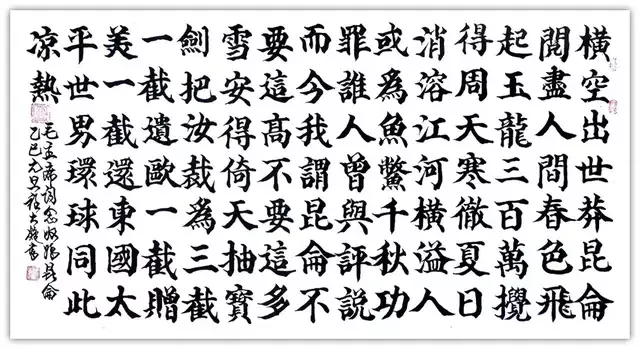 橫空出世莽昆侖
閱盡人間春色飛
起玉龍三百萬攪
得周天寒徹夏日
消溶江河橫溢人
或爲魚鱉千秋功
罪誰人曾與評說
而今我謂昆侖不
要這高不要這多
雪安得倚天抽寶
劍把汝裁爲三截
一截遺歐一截贈
美一截還東國太
平世界環球同此
凉熱
毛主席詞念奴嬌昆侖
乙巳元旦